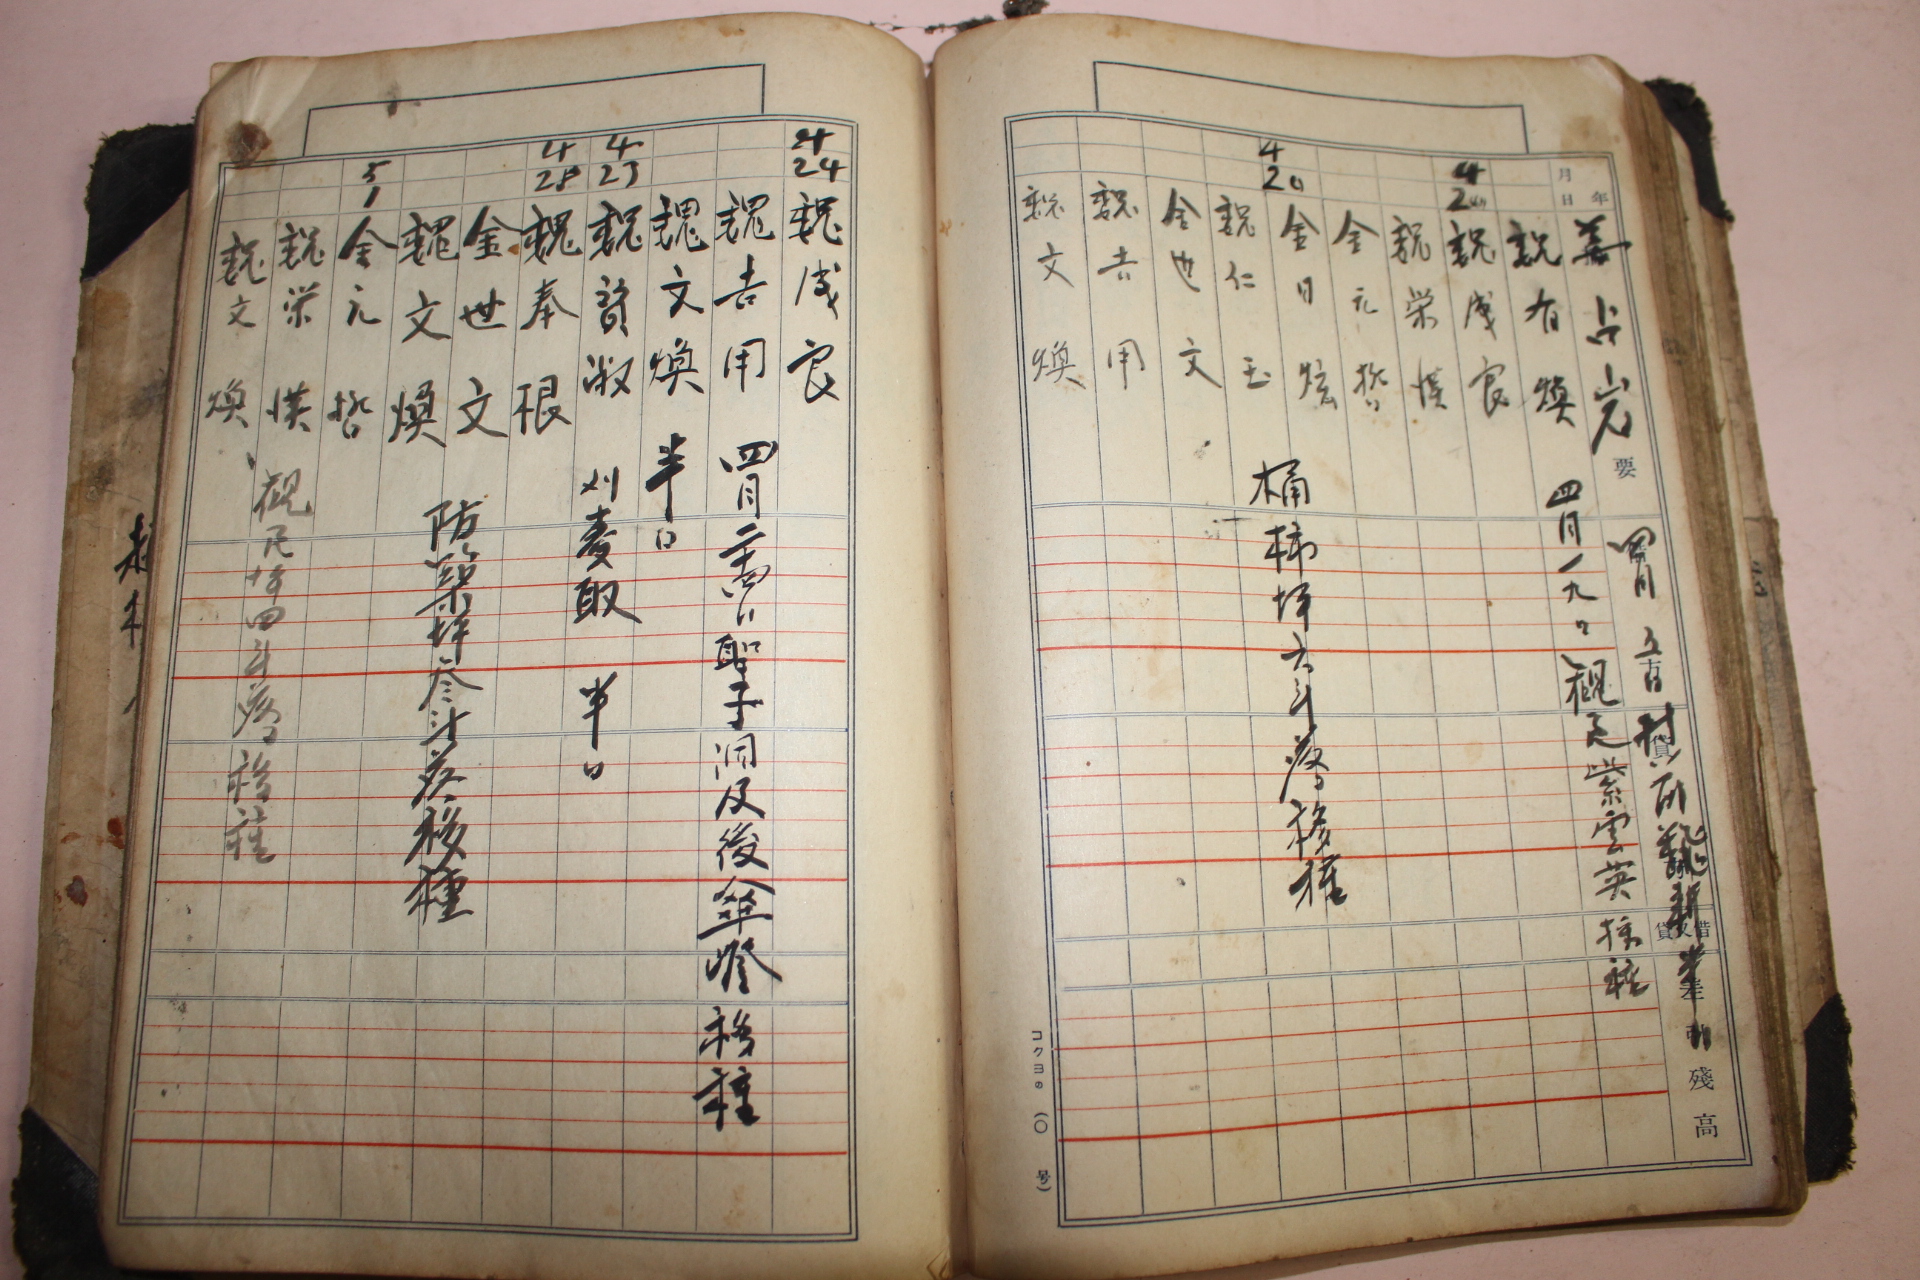 年
月
日
要
借又貸
差
殘
高
姜占岩 四月 五日
4
20
魏有煥 四月一九日 觀 紫雲英
魏成良
魏栄漢
金元哲
4
20
金日炫 桶柿坪六斗落移種
魏仁玉
金世文
魏吉用
魏文煥
コクヨの(一〇号)
4
24
魏成良
魏吉用 四月二十四日聖子洞及後傘嶝移種
魏文煥 半日
4
25
魏賛淑 刈麦取 半日
4
28
魏奉根
金世文
魏文煥 防築坪 斗落移種
5
1
金元哲
魏栄漢 觀 坪四斗落移種
魏文煥